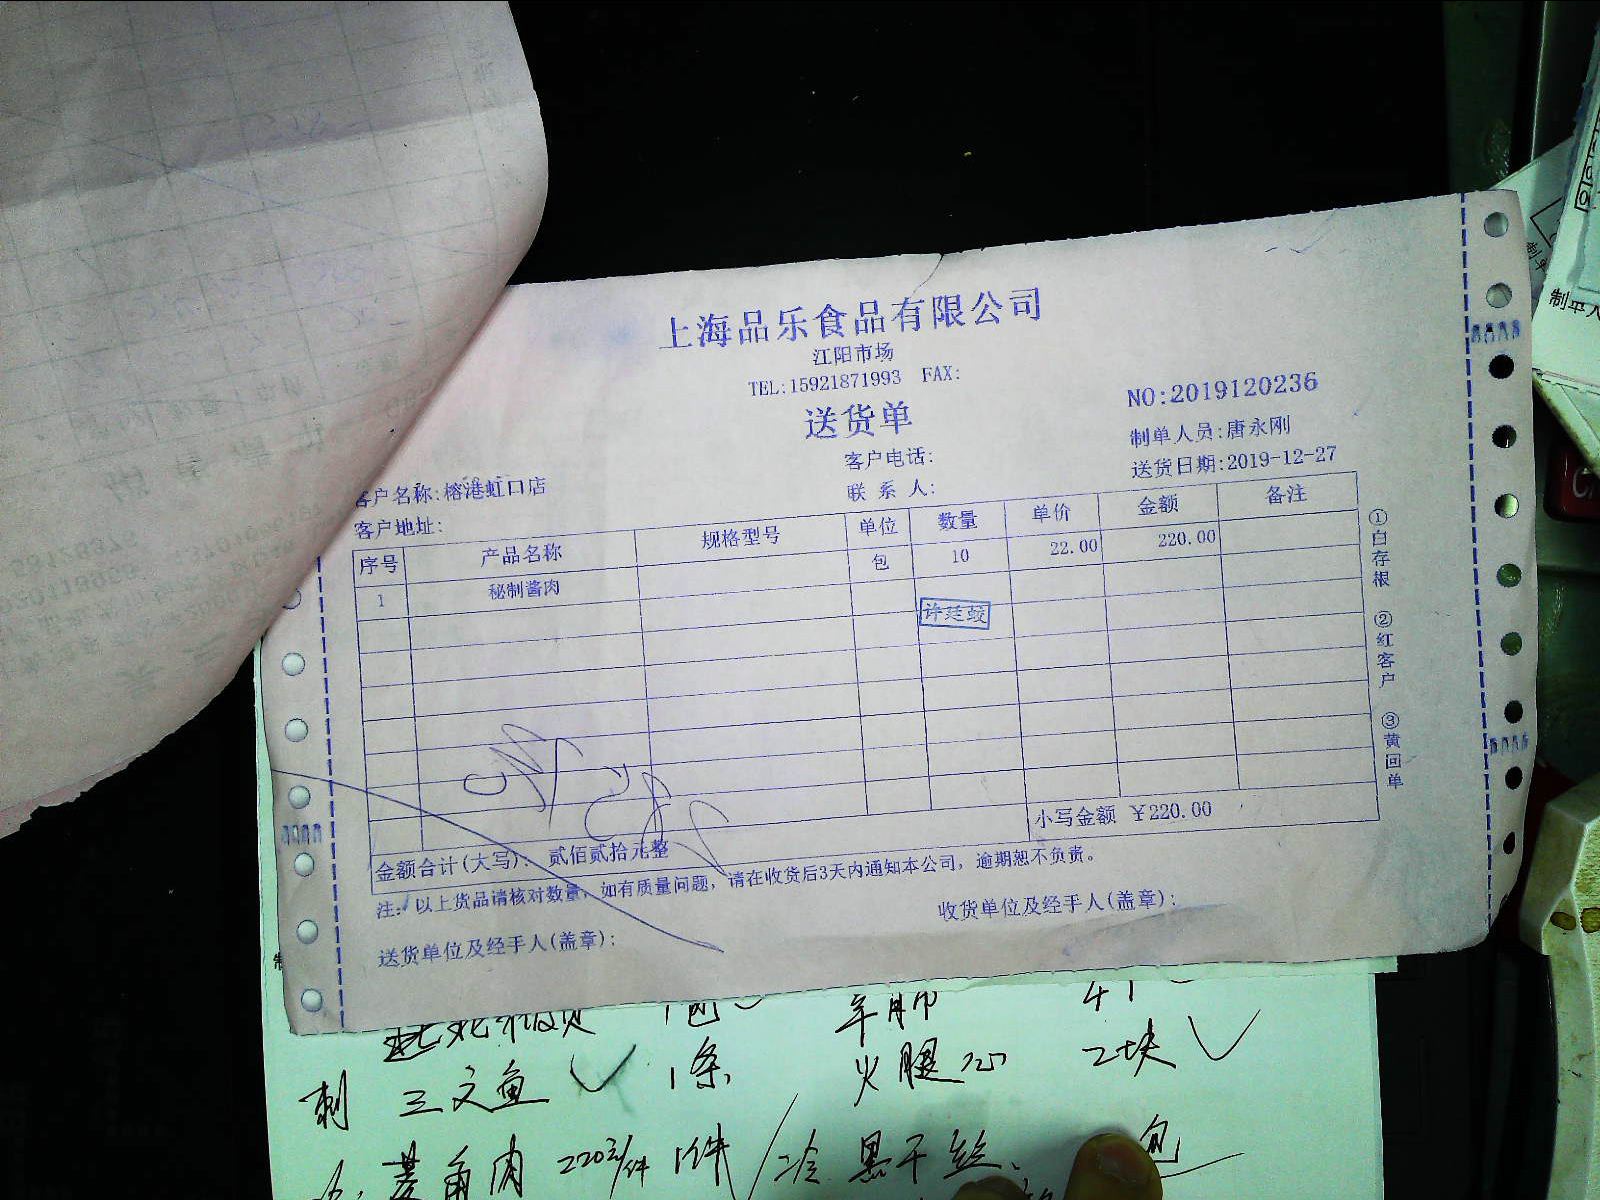 上海品乐食品有限公司
江阳市场
TEL:15921871993 FAX:
送货单
NO:2019120236
制单人员:唐永刚
客户名称:榕港虹口店
客户电话:
送货日期:2019-12-27
客户地址:
联系人:
序号 产品名称 规格型号 单位 数量 单价 金额 备注
1 秘制酱肉 包 10 22.00 220.00
许廷蛟
金额合计(大写): 贰佰贰拾元整 小写金额 ¥220.00
注: 以上货品请核对数量, 如有质量问题, 请在收货后3天内通知本公司, 逾期恕不负责。
送货单位及经手人(盖章): 收货单位及经手人(盖章):
①白存根 ②红客户 ③黄回单
制单人
1包
刺 三文鱼 1条 火腿心 2块
菱角肉 1件 黑干丝 包